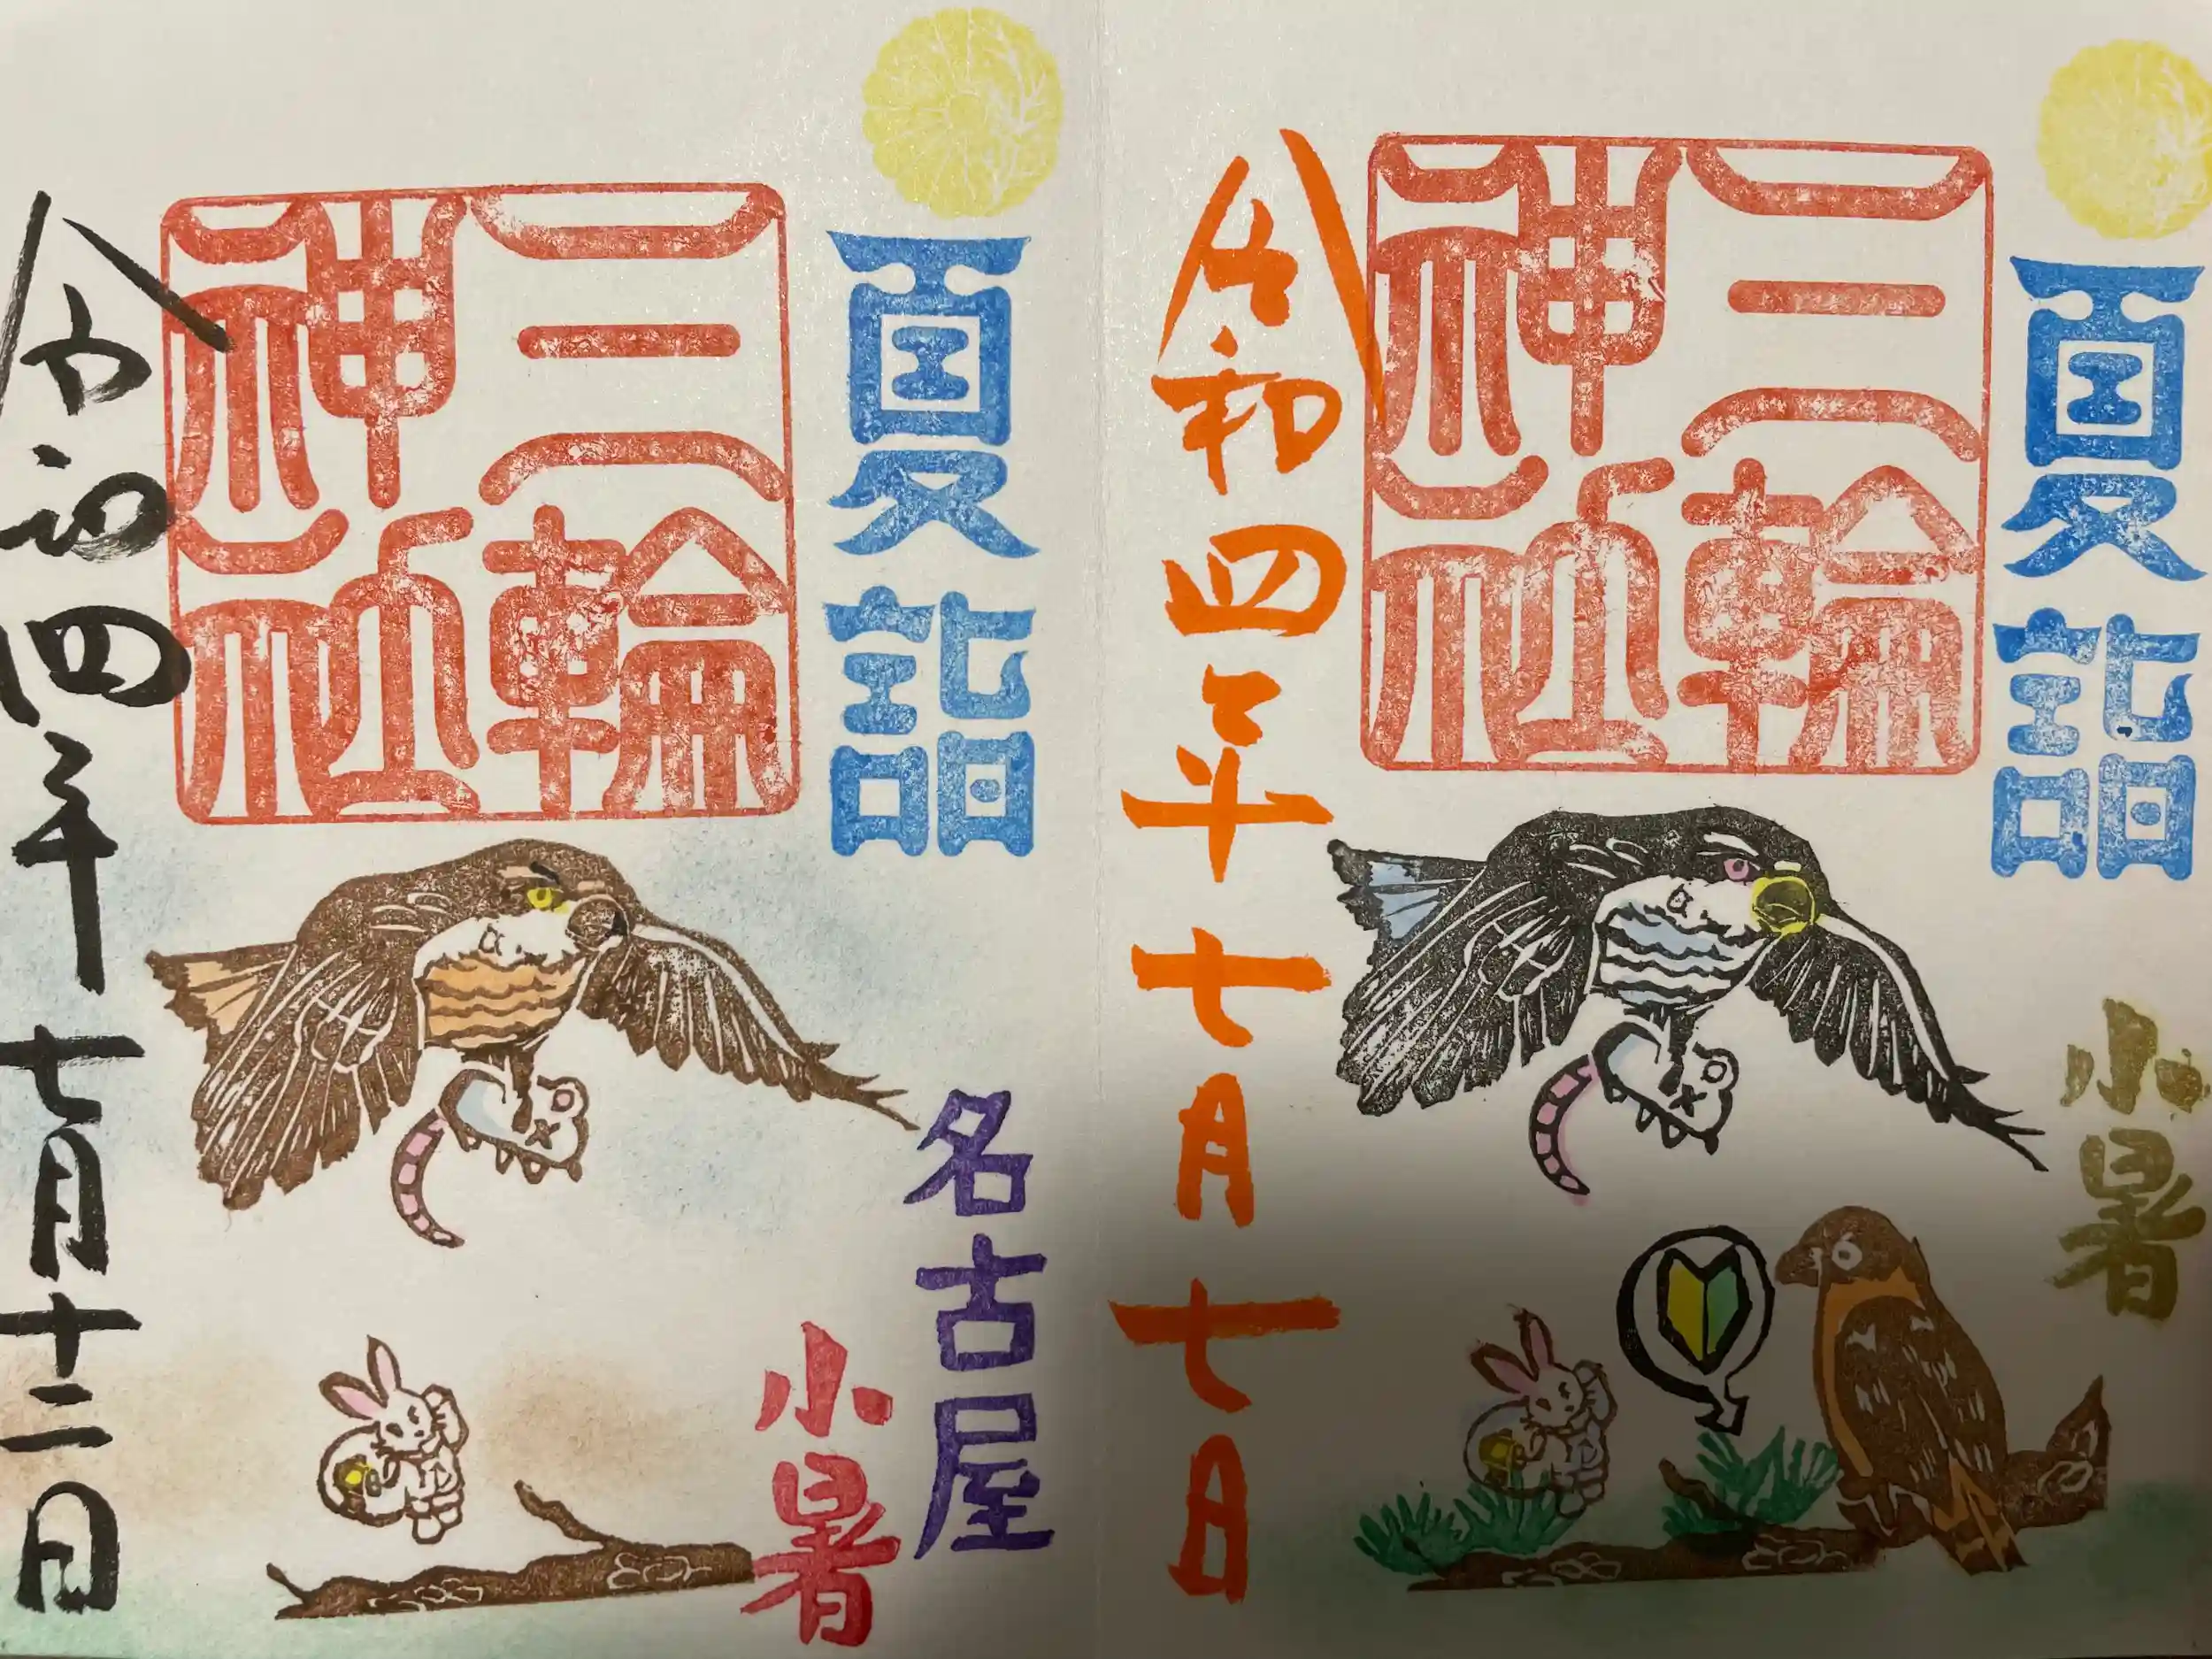 夏詣
三輪
神社
小暑
令和四年七月七日
夏詣
名古屋
小暑
三輪
神社
令和四年七月十二日